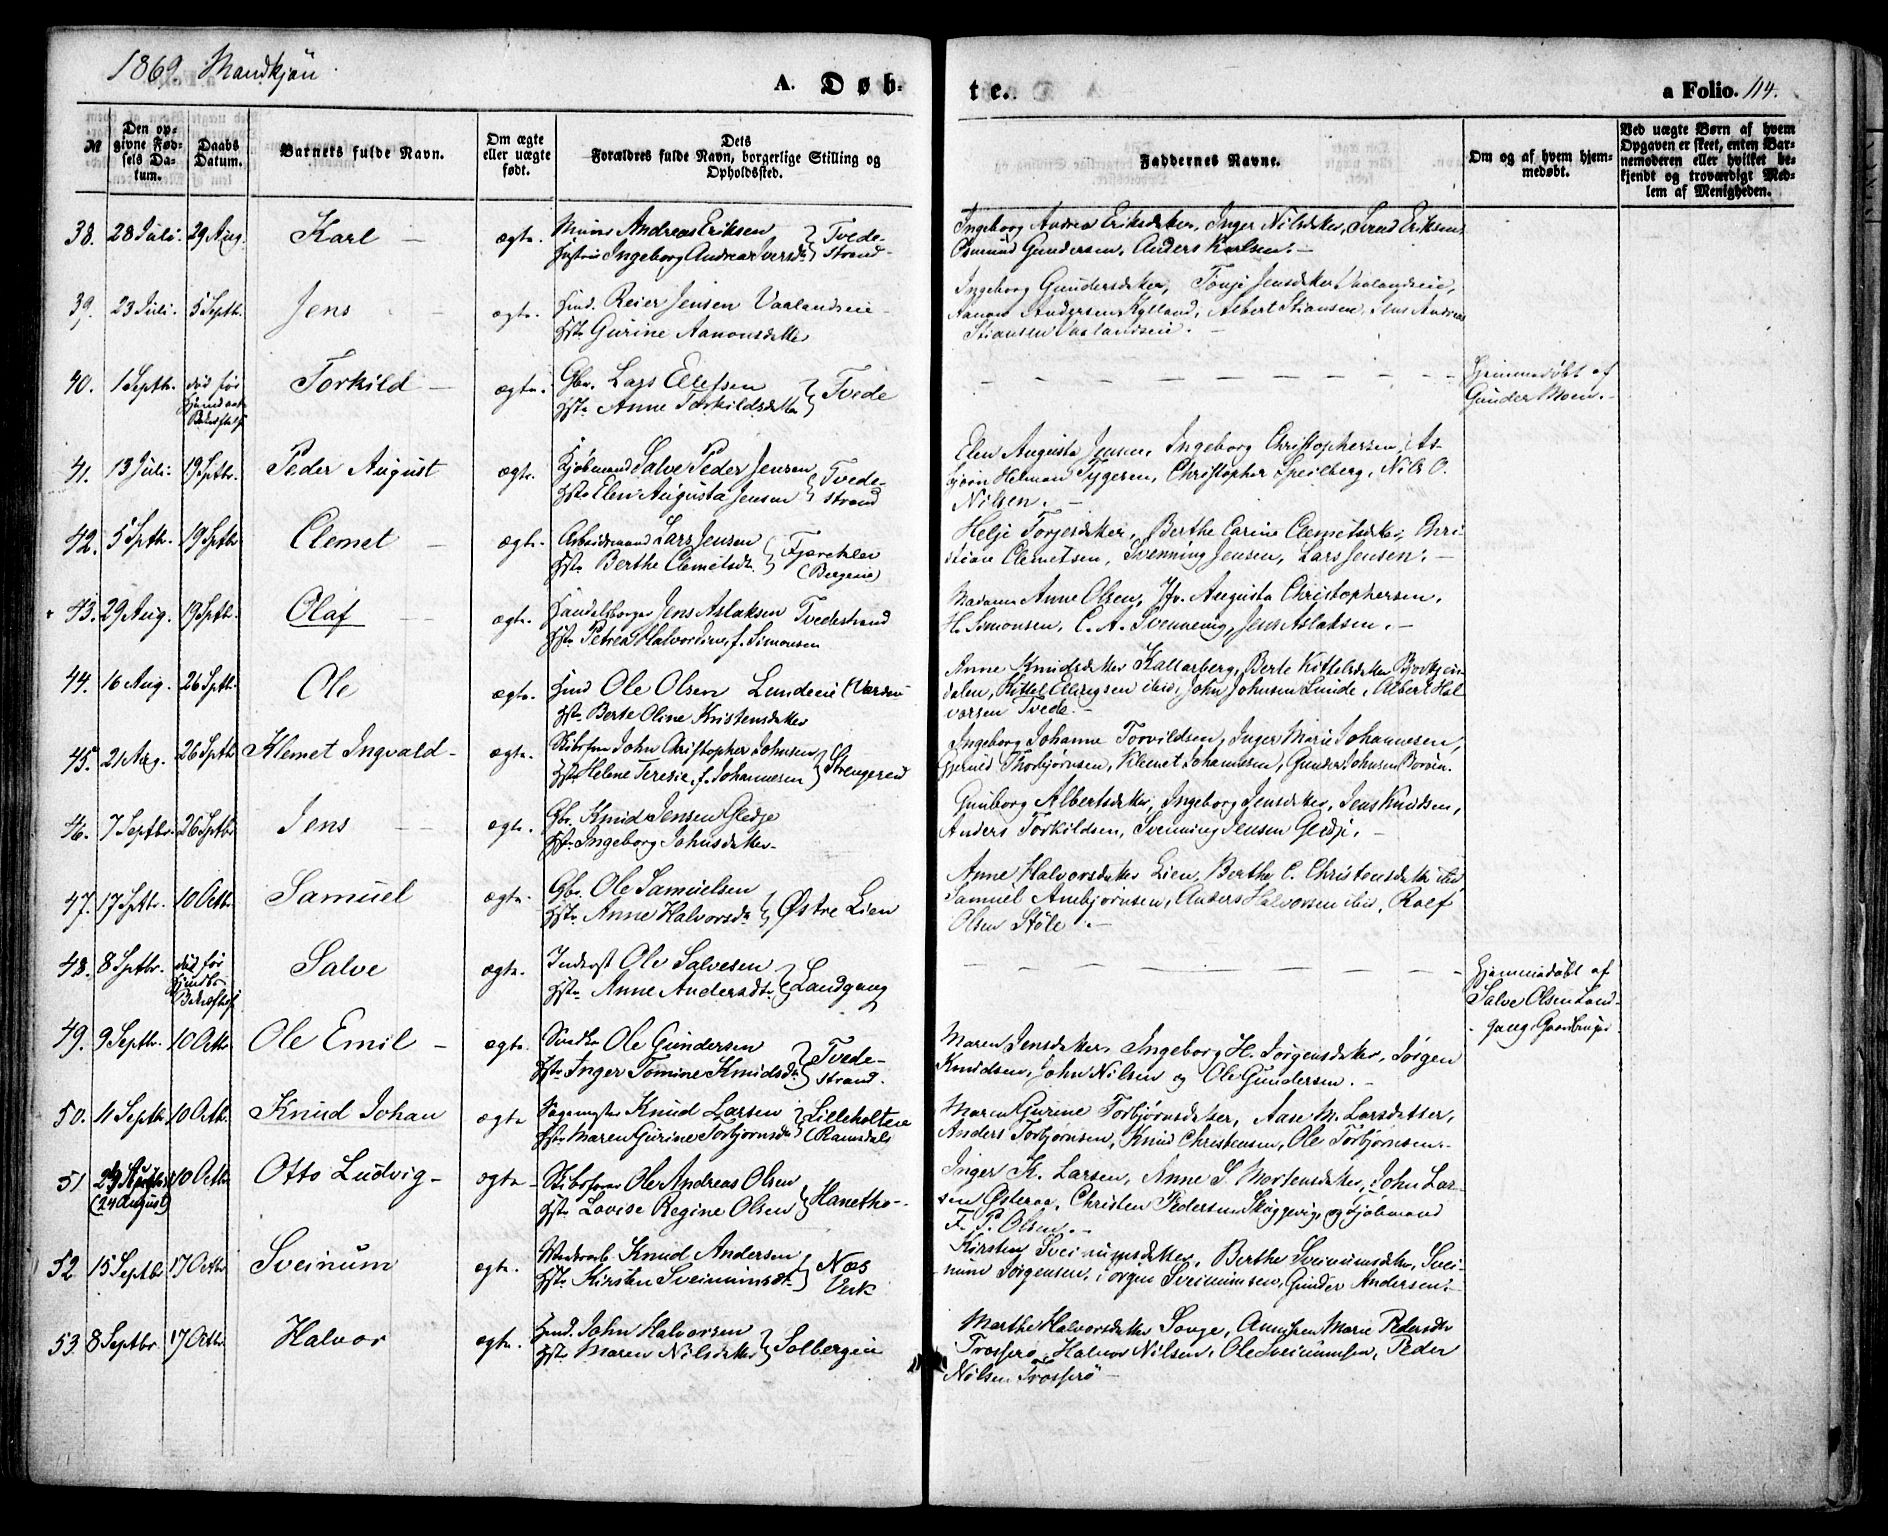 1869 Mandkjön
A. Døb-
te.
a Folio. 114.
№
Den op-
givne Fød-
sels Da-
tum.
Daabs
Datum.
Barnets fulde Navn.
Om ægte
eller uægte
født.
Dets
Forældres fulde Navn, borgerlige Stilling og
Opholdssted.
Faddernes Navne.
Om og af hvem hjem-
medøbt.
Ved uægte Børn af hvem
Opgaven er skeet, enten Bar-
nemoderen eller hvilket be-
kjendt og troværdigt Med-
lem af Menigheden.
38. 28 Juli. 29 Aug. Karl ægte. Andreas Eriksen
Hustru Ingeborg Andrea Iversdr } Tvede-
strand
Ingeborg Andrea Eriksdatter, Inger Nilsdatter, Svend Eriksen,
Osmund Gundersen, Anders Karlsen.
39. 23 Juli. 5 Septb. Jens ægte. Hmd. Reier Jensen Vaalandseie
Hstr Gurine Aanonsdatter
Ingeborg Gundersdatter, Tonje Jensdatter Vaalandseie,
Aanon Andersen Kylland, Albert Stiansen, Jens Andreas
Stiansen Vaalandseie.
40. 1 Septb. død før
Torkild ægte. Gbr. Lars Ellefsen
Hstr Anne Torkildsdatter } Tvede
Hjemmedøbt af
Gunder Moen.
41. 13 Juli. 19 Septbr. Peder August ægte. Kjøbmand Salve Peder Jensen
Hstr Elen Augusta Jensen } Tvede-
strand
Elen Augusta Jensen, Ingeborg Christophersen, As-
bjørn Helman Tygesen, Christopher Speilberg, Nils O.
Nilsen.
42. 5 Septb. 19 Septbr Clemet ægte. Arbeidsmand Lars Jensen
Hstr Berthe Clemetsdr } Fjærekleiv
(Bergeeie)
Helje Torjesdatter, Berthe Carine Clemetsdatter, Chri-
stiane Clemetsen, Svenning Jensen, Lars Jensen.
43. 29 Aug. 19 Septb. Olaf ægte. Handelsborger Jens Aslaksen Tvedestrand
Hstr Petrea Halvordine, f. Simonsen
Madame Anne Olsen, Jfr. Augusta Christophersen,
H. Simonsen, C. A. Svennevig, Jens Aslaksen.
44. 16 Aug. 26 Septb. Ole ægte. Hmd Ole Olsen Lundeeie
Hstr Berte Oline Kristensdatter
Anne Knudsdatter Kallarberg, Berte Kittelsdatter
dalen, Kittel ibid, John Johnsen Lunde, Albert Hal-
vorsen Tvede.
45. 21 Aug. 26 Septb. Klemet Ingvald ægte. Skibsfører John Christopher Johnsen
Hstr Helene Teresie, f. Johannesen } Strengereid
Ingeborg Johanne Torvildsen, Inger Marie Johannesen,
Gjerud Thorbjørnsen, Klemet Johannesen, Gunder Johnsen Borøen.
46. 7 Septbr. 26 Septbr Jens ægte. Gbr. Knud Jensen Gledje
Hstr. Ingeborg Johnsdatter
Gunborg Albertsdatter, Ingeborg Jensdatter, Jens Knudsen,
Anders Torkildsen, Svenning Jensen Gledje.
47. 17 Septb. 10 Octbr. Samuel ægte. Gbr. Ole Samuelsen
Hstr Anne Halvorsdr } Østre Lien
Anne Halvorsdatter Lien, Berthe C. Christensdatter ibd
Samuel Annbjørnsen, Anders Halvorsen ibid, Rolf
Olsen Støle.
48. 8 Septbr. død før
Salve ægte. Inderst Ole Salvesen
Hstr Anne Andersdtr } Landgang
Hjemmedøbt af
Salve Olsen Land-
gang, Gaardbruger
49. 9 Septbr. 10 Octbr. Ole Emil ægte. Snedker Ole Gundersen
Hstr Inger Tomine Knudsdr } Tvede-
strand.
Maren Jensdatter, Ingeborg H. Jørgensdatter, Jørgen
Knudsen, John Nilsen og Ole Gundersen.
50. 11 Septb. 10 Octb. Knud Johan ægte Sagmester Knud Larsen
Hstr Maren Gurine Torbjørnsdr } Lilleholteie
(Ramsdal)
Maren Gurine Torbjørnsdatter, Aase M. Larsdatter,
Anders Torbjørnsen, Knud Christensen, Ole Torbjørnsen.
51 (24 August) 10 Octbr Otto Ludvig ægte Skibsfører Ole Andreas Olsen
Hstr Lovise Regine Olsen } Hanetho
Inger K. Larsen, Anne S. Mortensdatter, John Lar-
sen Østeraa, Christen Pedersen Skaggevig og Kjøbmand
F. P. Olsen.
52 15 Septbr 17 Octbr Sveinum ægte. Knud Andersen
Hstr Kirsten Sveinumsdtr } Næs
Verk
Kirsten Sveinumsdatter, Berthe Sveinumsdatter, Svei-
num Jørgensen, Jørgen Sveinumsen, Gunder Andersen.
53. 8 Septbr 17 Octbr Halvor ægte. Hmd. John Halvorsen
Hstr. Maren Nilsdatter } Solbergeie
Marthe Halvorsdatter Songe, Anne Marie Pedersdtr
Halvor Nilsen, Ole Sveinumsen, Peder
Nilsen